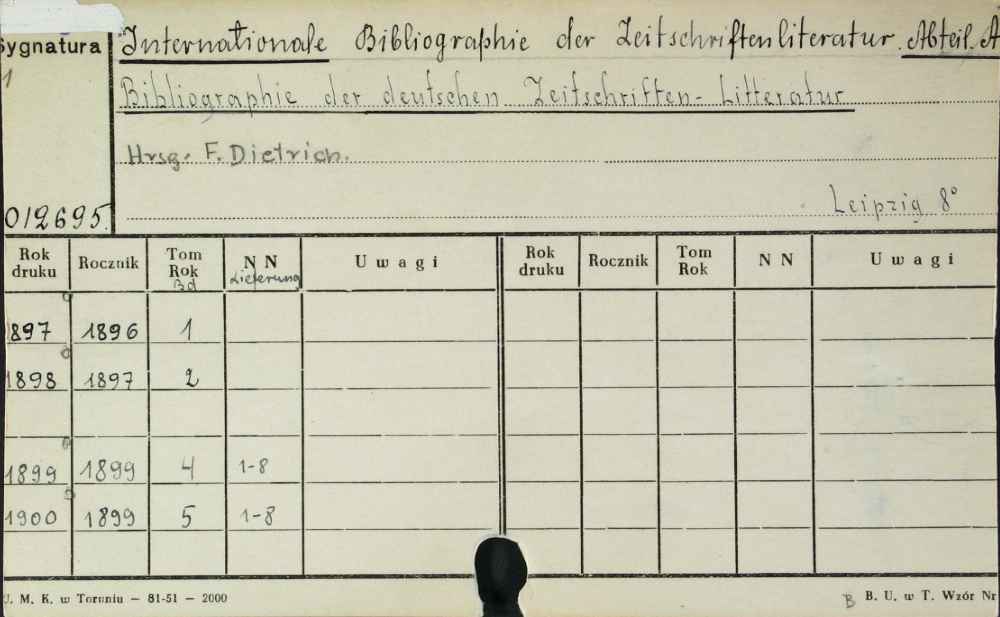 Sygnatura
1
012695.
Internationale Bibliographie der Zeitschriftenliteratur. Abteil. A
Bibliographie der deutschen Zeitschriften-Litteratur
Hrsg. F. Dietrich.
Leipzig 8°
Rok druku Rocznik Tom Rok Bd NN Lieferung Uwagi Rok druku Rocznik Tom Rok NN Uwagi
897 1896 1
1898 1897 2
1899 1899 4 1-8
1900 1899 5 1-8
U. M. K. w Toruniu — 81-51 — 2000
B B. U. w T. Wzór Nr